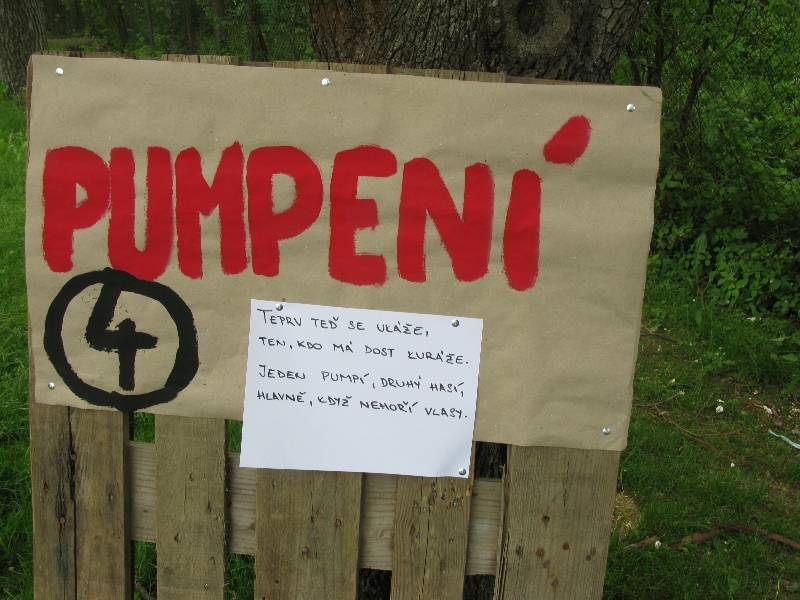 PUMPENÍ
4
TEPRV TEĎ SE UKÁŽE,
TEN, KDO MÁ DOST KURÁŽE.
JEDEN PUMPÍ, DRUHÝ HASÍ,
HLAVNĚ, KDYŽ NEHOŘÍ VLASY.